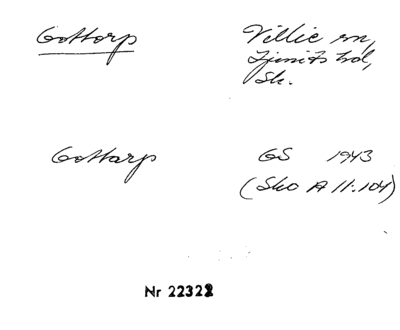 Gottorp Villie sn,
Ljunits hd,
Sk.
Gottarp GS 1943
(Sko A 11:104)
Nr 22322